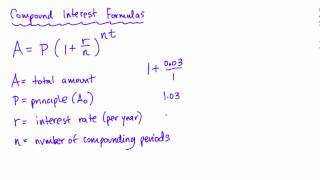 Compound Interest Formulas
A = P (1 + r/n)^nt
1 + 0.03/1
A = total amount
P = principle (A₀) 1.03
r = interest rate (per year)
n = number of compounding periods